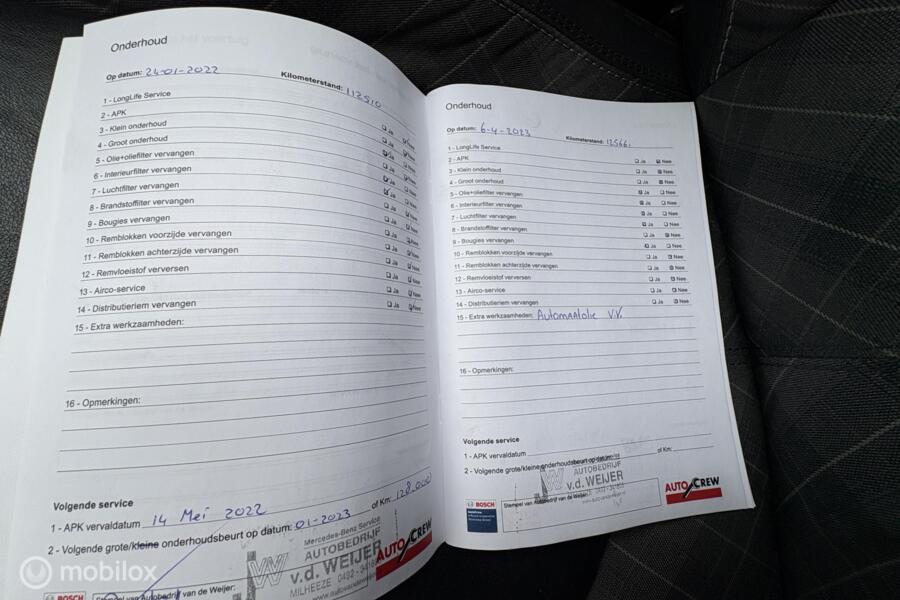 Onderhoud
Op datum: 24-01-2022 Kilometerstand: 112510
1 - LongLife Service
2 - APK
3 - Klein onderhoud
4 - Groot onderhoud
5 - Olie+oliefilter vervangen
6 - Interieurfilter vervangen
7 - Luchtfilter vervangen
8 - Brandstoffilter vervangen
9 - Bougies vervangen
10 - Remblokken voorzijde vervangen
11 - Remblokken achterzijde vervangen
12 - Remvloeistof verversen
13 - Airco-service
14 - Distributieriem vervangen
15 - Extra werkzaamheden:
16 - Opmerkingen:
Volgende service
1 - APK vervaldatum 14 Mei 2022
2 - Volgende grote/kleine onderhoudsbeurt op datum: 01-2023 of Km: 128.000
Mercedes-Benz Service
AUTOBEDRIJF
v.d. WEIJER
MILHEEZE
AUTO CREW
BOSCH
Stempel van Autobedrijf van de Weijer:
Onderhoud
Op datum: 6-4-2023 Kilometerstand: 12566
1 - LongLife Service Ja Nee
2 - APK Ja Nee
3 - Klein onderhoud Ja Nee
4 - Groot onderhoud Ja Nee
5 - Olie+oliefilter vervangen Ja Nee
6 - Interieurfilter vervangen Ja Nee
7 - Luchtfilter vervangen Ja Nee
8 - Brandstoffilter vervangen Ja Nee
9 - Bougies vervangen Ja Nee
10 - Remblokken voorzijde vervangen Ja Nee
11 - Remblokken achterzijde vervangen Ja Nee
12 - Remvloeistof verversen Ja Nee
13 - Airco-service Ja Nee
14 - Distributieriem vervangen
15 - Extra werkzaamheden: Automaatolie V.V.
16 - Opmerkingen:
Volgende service
1 - APK vervaldatum
2 - Volgende grote/kleine onderhoudsbeurt op datum: of Km:
AUTOBEDRIJF
v.d. WEIJER
BOSCH
Stempel van Autobedrijf van de Weijer:
AUTO CREW
mobilox